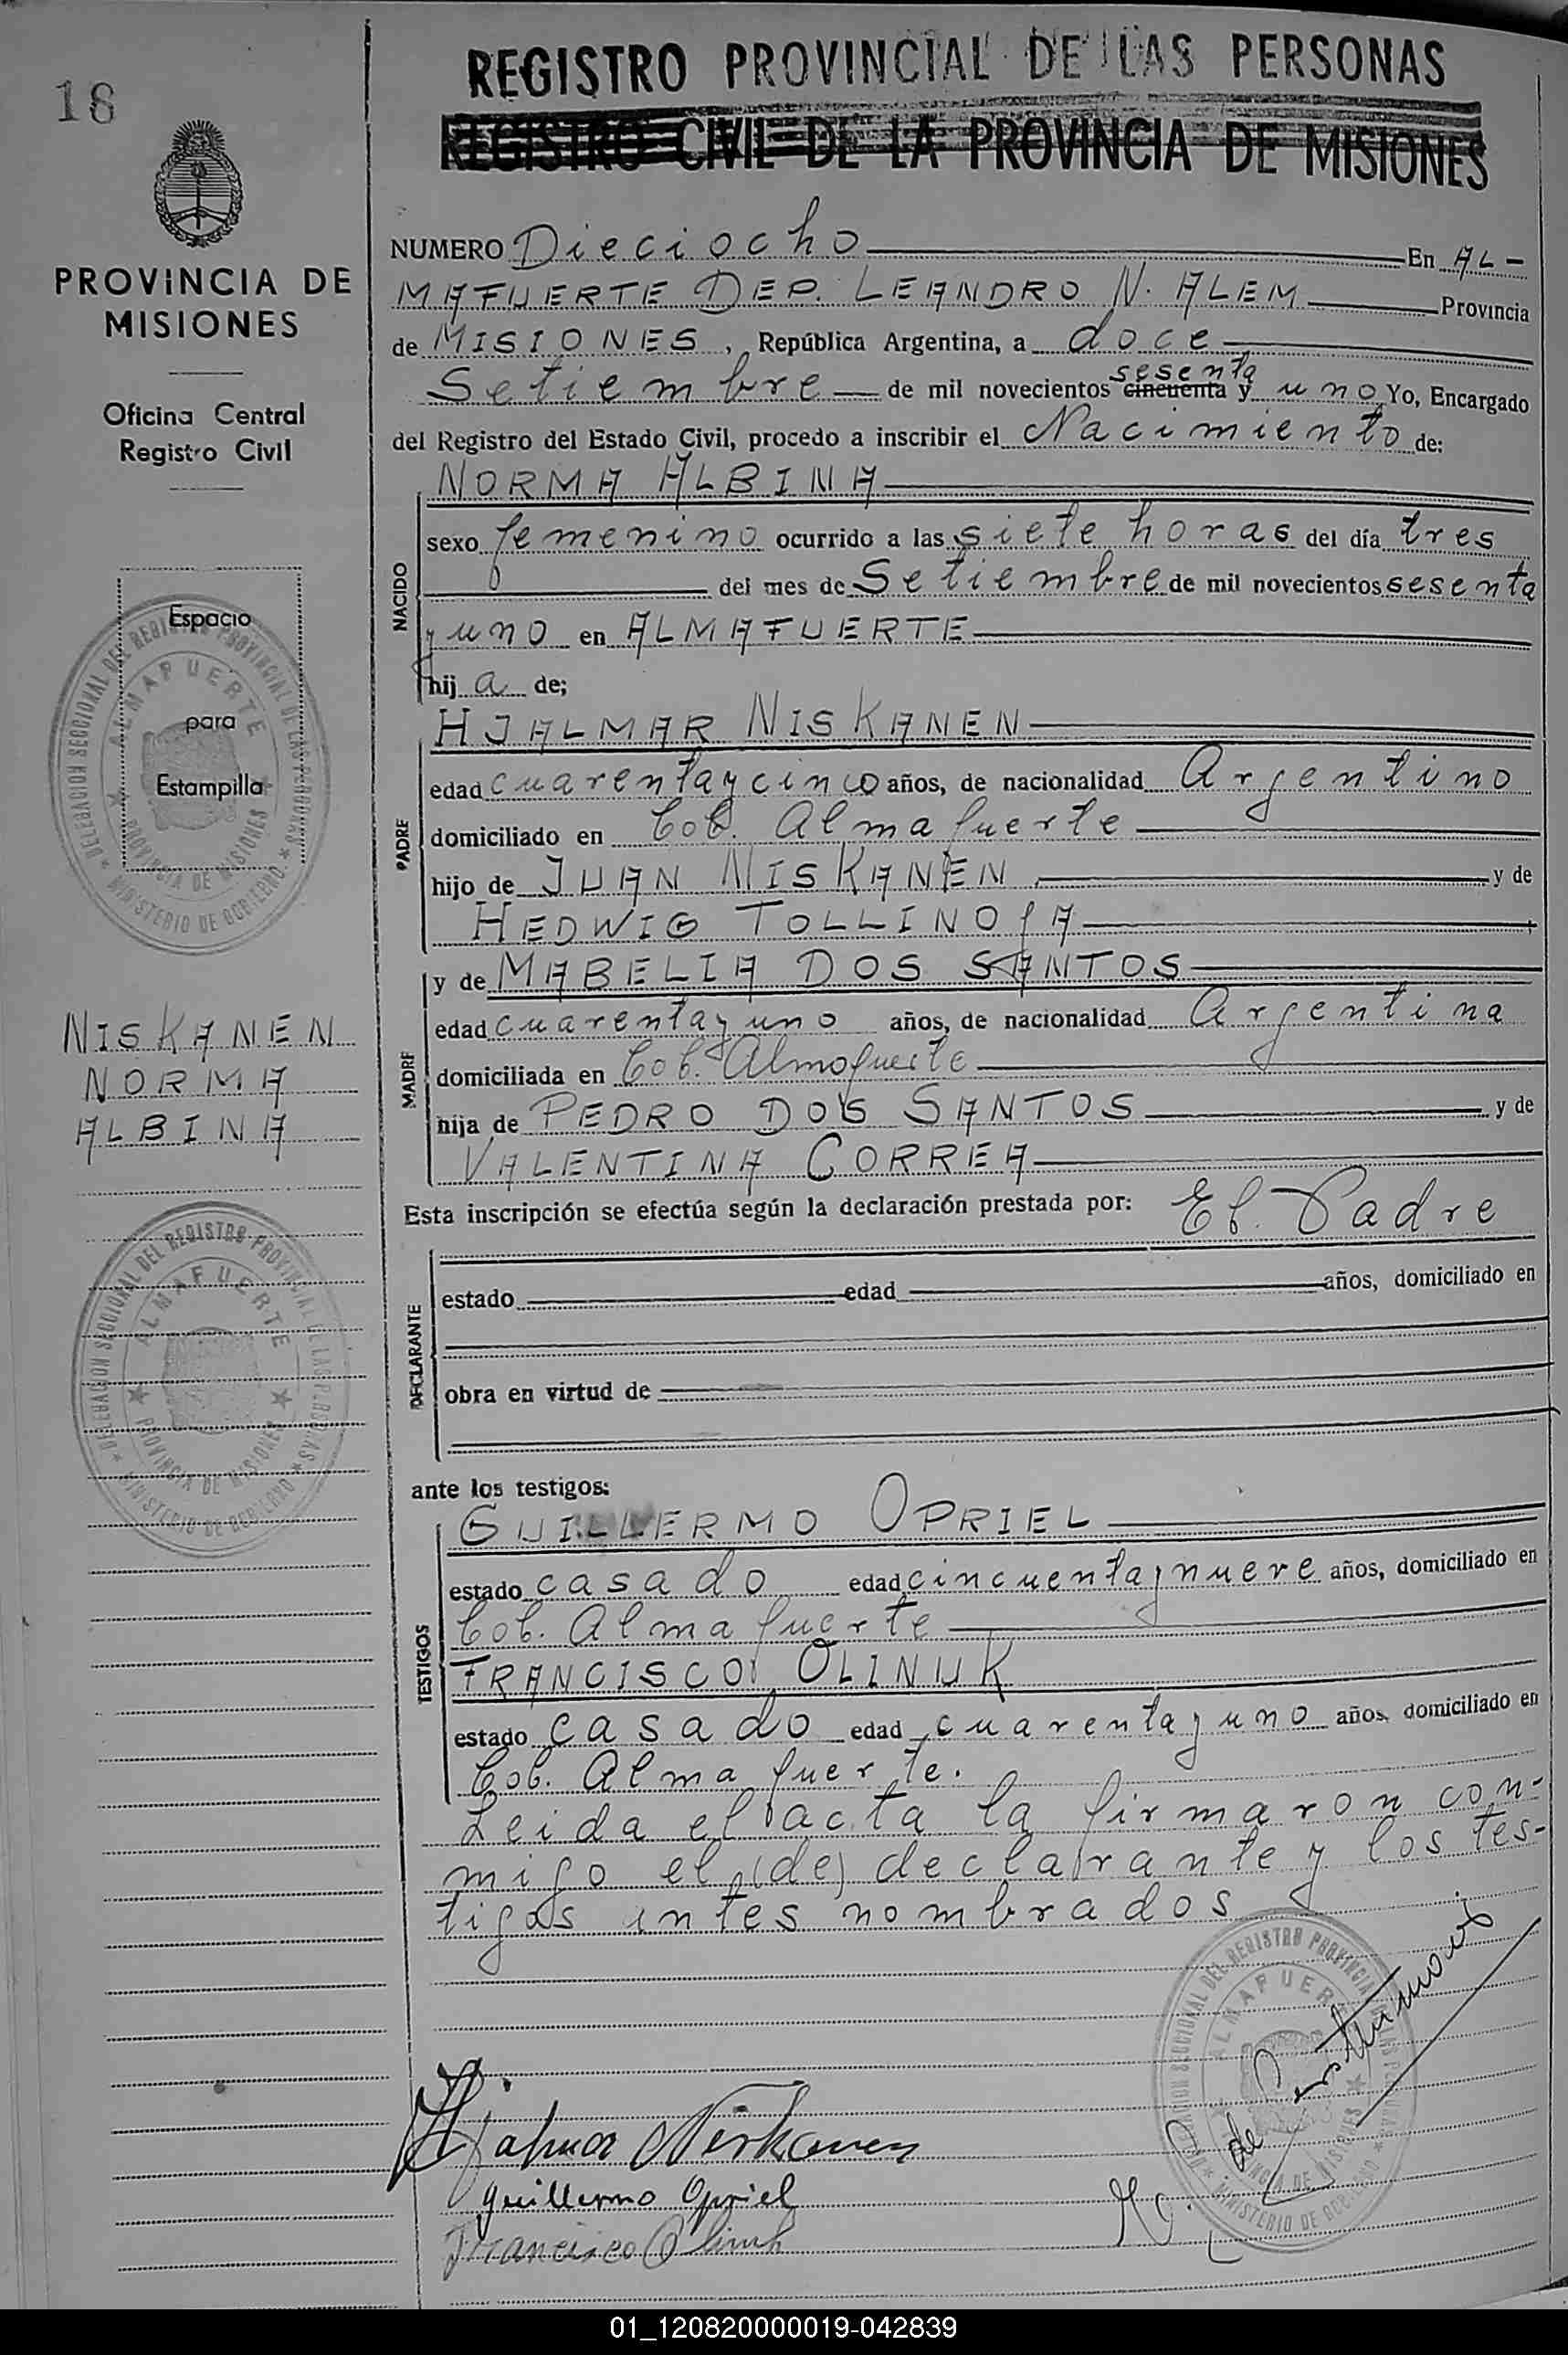 18
PROVINCIA DE
MISIONES
Oficina Central
Registro Civil
Espacio
para
Estampilla
DELEGACION SECCIONAL DEL REGISTRO PROVINCIAL DE LAS PERSONAS
ALMAFUERTE
PROVINCIA DE MISIONES
MINISTERIO DE GOBIERNO
NISKANEN
NORMA
ALBINA
DELEGACION SECCIONAL DEL REGISTRO PROVINCIAL DE LAS PERSONAS
ALMAFUERTE
PROVINCIA DE MISIONES
MINISTERIO DE GOBIERNO
REGISTRO PROVINCIAL DE LAS PERSONAS
REGISTRO CIVIL DE LA PROVINCIA DE MISIONES
NUMERO Dieciocho En AL-
MAFUERTE DEP. LEANDRO N. ALEM Provincia
de MISIONES, República Argentina, a doce
Setiembre de mil novecientos cincuenta sesenta y uno Yo, Encargado
del Registro del Estado Civil, procedo a inscribir el Nacimiento de:
NACIDO
NORMA ALBINA
sexo femenino ocurrido a las siete horas del día tres
del mes de Setiembre de mil novecientos sesenta
y uno en ALMAFUERTE
hij a de;
PADRE
HJALMAR NISKANEN
edad cuarenta y cinco años, de nacionalidad Argentino
domiciliado en Col. Almafuerte
hijo de JUAN NISKANEN y de
HEDWIG TOLLINO
MADRE
y de MABELIA DOS SANTOS
edad cuarenta y uno años, de nacionalidad Argentina
domiciliada en Col. Almafuerte
hija de PEDRO DOS SANTOS y de
VALENTINA CORREA
Esta inscripción se efectúa según la declaración prestada por: El Padre
DECLARANTE
estado edad años, domiciliado en
obra en virtud de
ante los testigos:
TESTIGOS
GUILLERMO OPRIEL
estado casado edad cincuenta y nueve años, domiciliado en
Col. Almafuerte
FRANCISCO OLINUK
estado casado edad cuarenta y uno años, domiciliado en
Col. Almafuerte.
Leida el acta la firmaron con-
migo el (de) declarante y los tes-
tigos antes nombrados
DELEGACION SECCIONAL DEL REGISTRO PROVINCIAL DE LAS PERSONAS
ALMAFUERTE
PROVINCIA DE MISIONES
MINISTERIO DE GOBIERNO
Hjalmar Niskanen
Guillermo Opriel
Francisco Olinuk
01_120820000019-042839